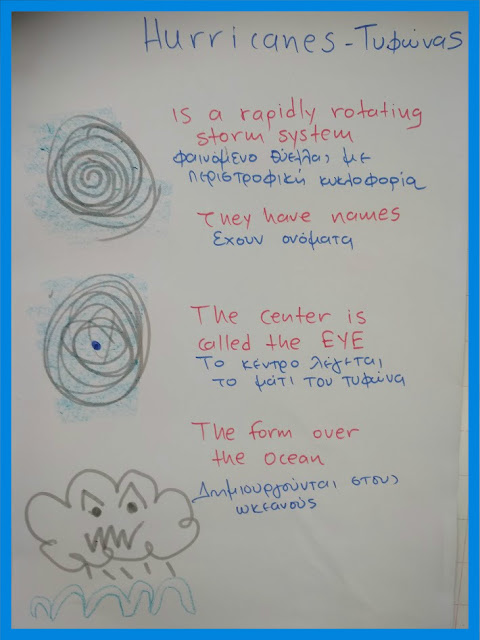 Hurricanes - Τυφώνας
is a rapidly rotating
storm system
φαινόμενο θύελλας με
περιστροφική κυκλοφορία
They have names
έχουν ονόματα
The center is
called the EYE
Το κέντρο λέγεται
το μάτι του τυφώνα
The form over
the ocean
Δημιουργούνται στους
ωκεανούς